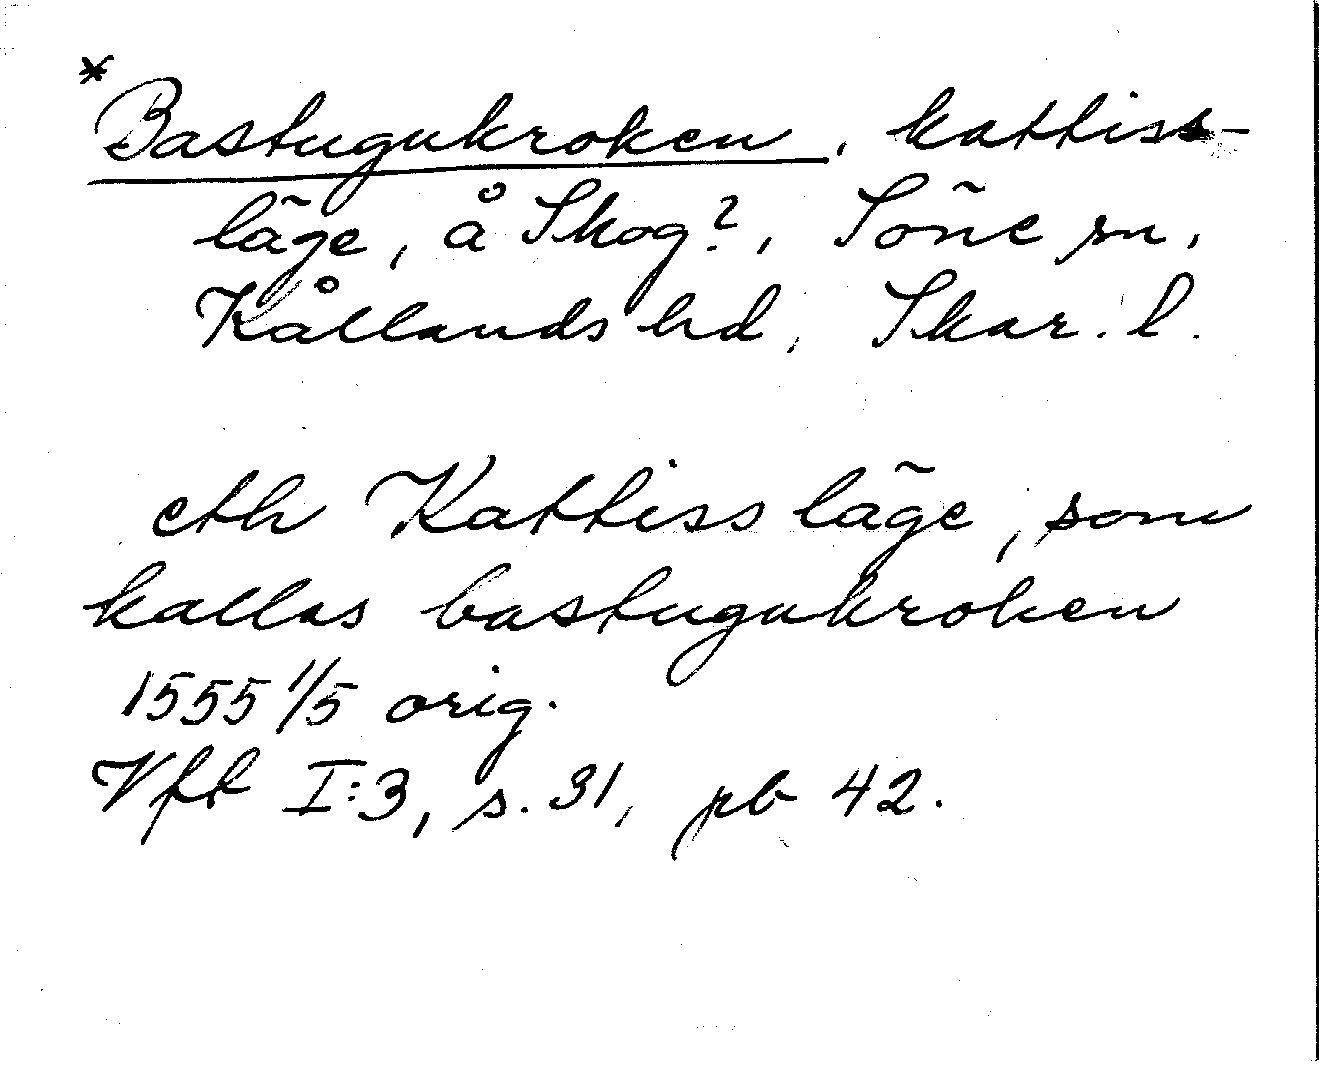 *Bastugukroken, kattiss-
läge, å Skog?, Söne sn,
Kållands hd, Skar. l.
eth Kattiss läge, som
kallas bastugukroken
1555 1/5 orig.
Vfft I:3, s. 31, pb 42.